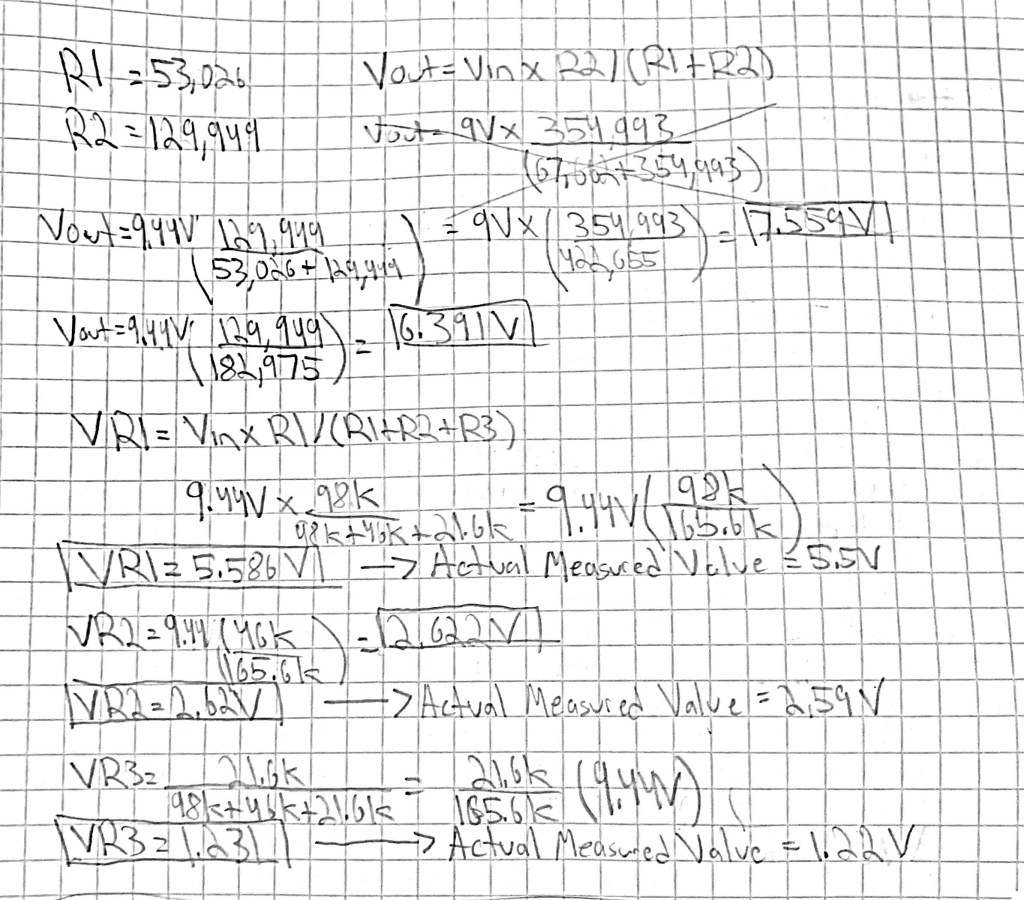 R1 = 53,026
Vout = Vin x R2/(R1+R2)
R2 = 129,949
Vout = 9V x 354,993/(67,662+354,993)
Vout = 9.44V (129,949/53,026+129,949) = 9V x (354,993/422,655) = 7.559V
Vout = 9.44V (129,949/182,975) = 6.391V
VR1 = Vin x R1/(R1+R2+R3)
9.44V x 98k/98k+46k+21.6k = 9.44V (98k/165.6k)
VR1 = 5.586V → Actual Measured Value = 5.5V
VR2 = 9.44 (46k/165.6k) = 2.622V
VR2 = 2.62V → Actual Measured Value = 2.59V
VR3 = 21.6k/98k+46k+21.6k = 21.6k/165.6k (9.44V)
VR3 = 1.231 → Actual Measured Value = 1.22V